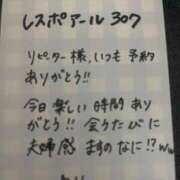 レスポアール 307
リピーター様、いつも予約
ありがとう!!
今日楽しい時間あり
がとう!! 会うたびに
夫婦感 ますのなに!? ww